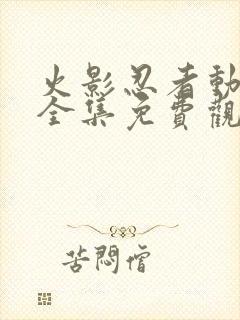 火影忍者動
全集免費觀
苦悶僧